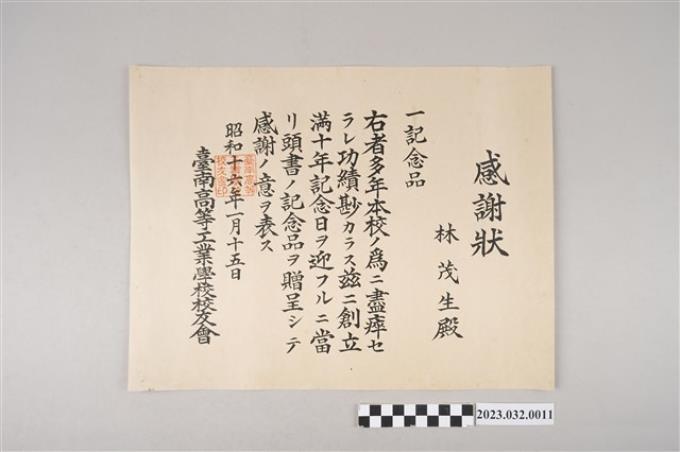 感謝狀
林茂生殿
一記念品
右者多年本校ノ爲ニ盡瘁セ
ラレ功績尠カラス茲ニ創立
滿十年記念日ヲ迎フルニ當
リ頭書ノ記念品ヲ贈呈シテ
感謝ノ意ヲ表ス
昭和十六年一月十五日
臺南高等工業學校校友會
2023.032.0011